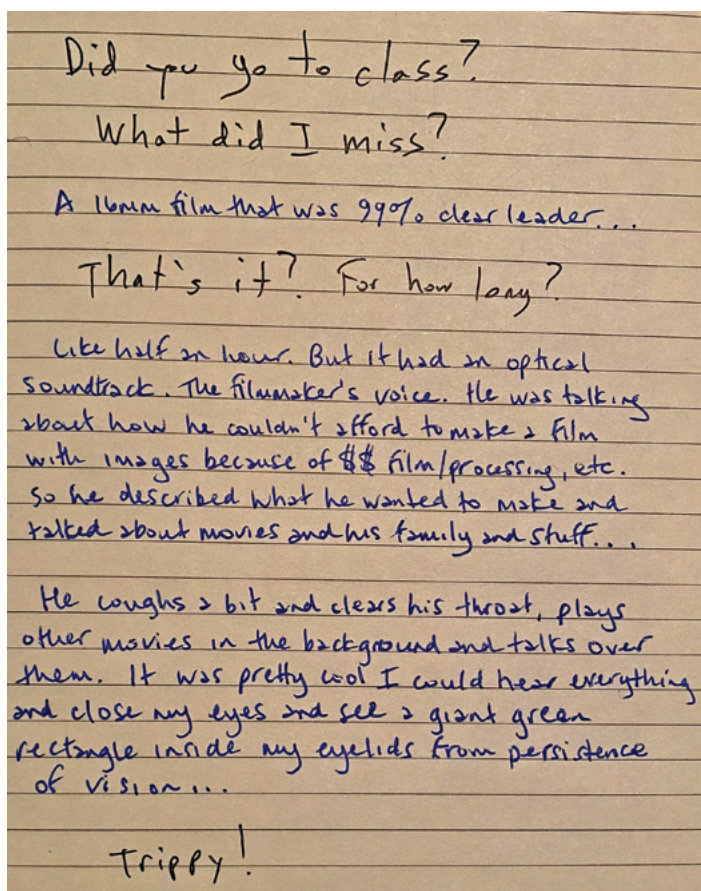 Did you go to class?
What did I miss?
A 16mm film that was 99% clear leader...
That's it? For how long?
Like half an hour. But it had an optical
soundtrack. The filmmaker's voice. He was talking
about how he couldn't afford to make a film
with images because of $$ film/processing, etc.
So he described what he wanted to make and
talked about movies and his family and stuff....
He coughs a bit and clears his throat, plays
other movies in the background and talks over
them. It was pretty cool I could hear everything
and close my eyes and see a giant green
rectangle inside my eyelids from persistence
of vision...
Trippy!